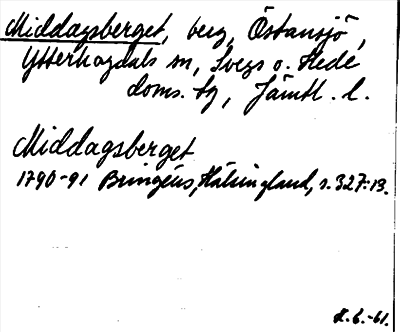 Middagsberget, berg, Östansjö,
Ytterhogdals sn, Svegs o. Hede
doms. tg, Jämtl. l.
Middagsberget
1790-91 Bringéus, Hälsingland, s. 327:13.
E.b.-61.